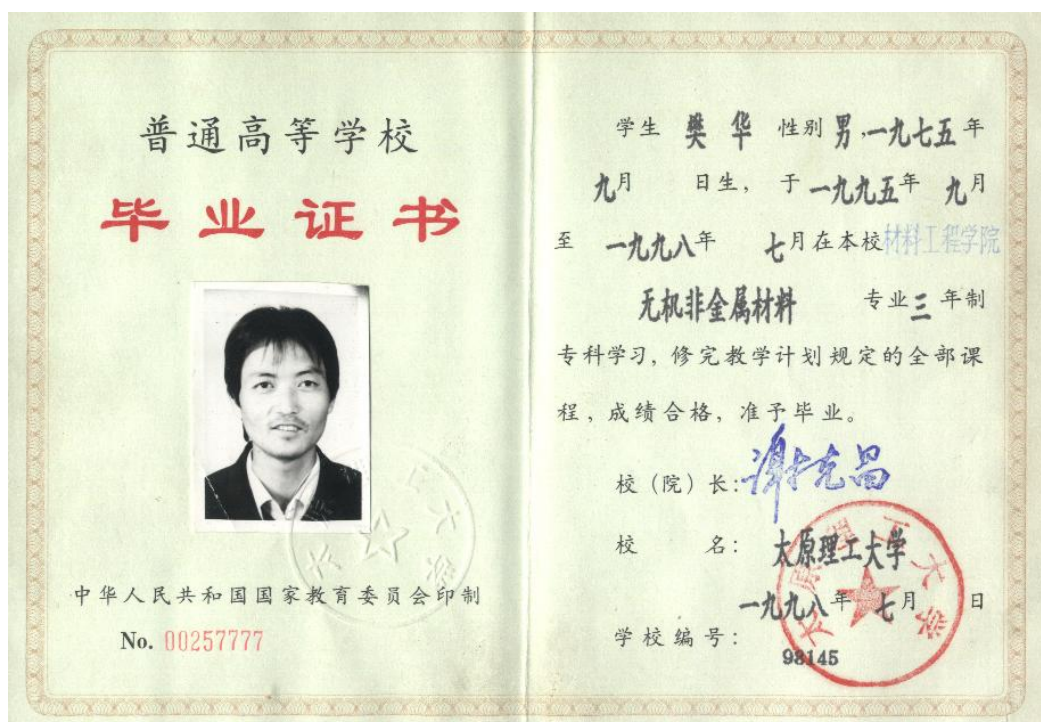 普通高等学校
毕业证书
中华人民共和国国家教育委员会印制
No. 00257777
学生 樊华 性别 男,一九七五年
九月 日生, 于一九九五年 九月
至 一九九八年 七月在本校材料工程学院
无机非金属材料 专业三年制
专科学习, 修完教学计划规定的全部课
程, 成绩合格, 准予毕业。
校(院)长: 谢克昌
校 名: 太原理工大学
一九九八年 七月 日
学校编号: 98145
太原理工大学